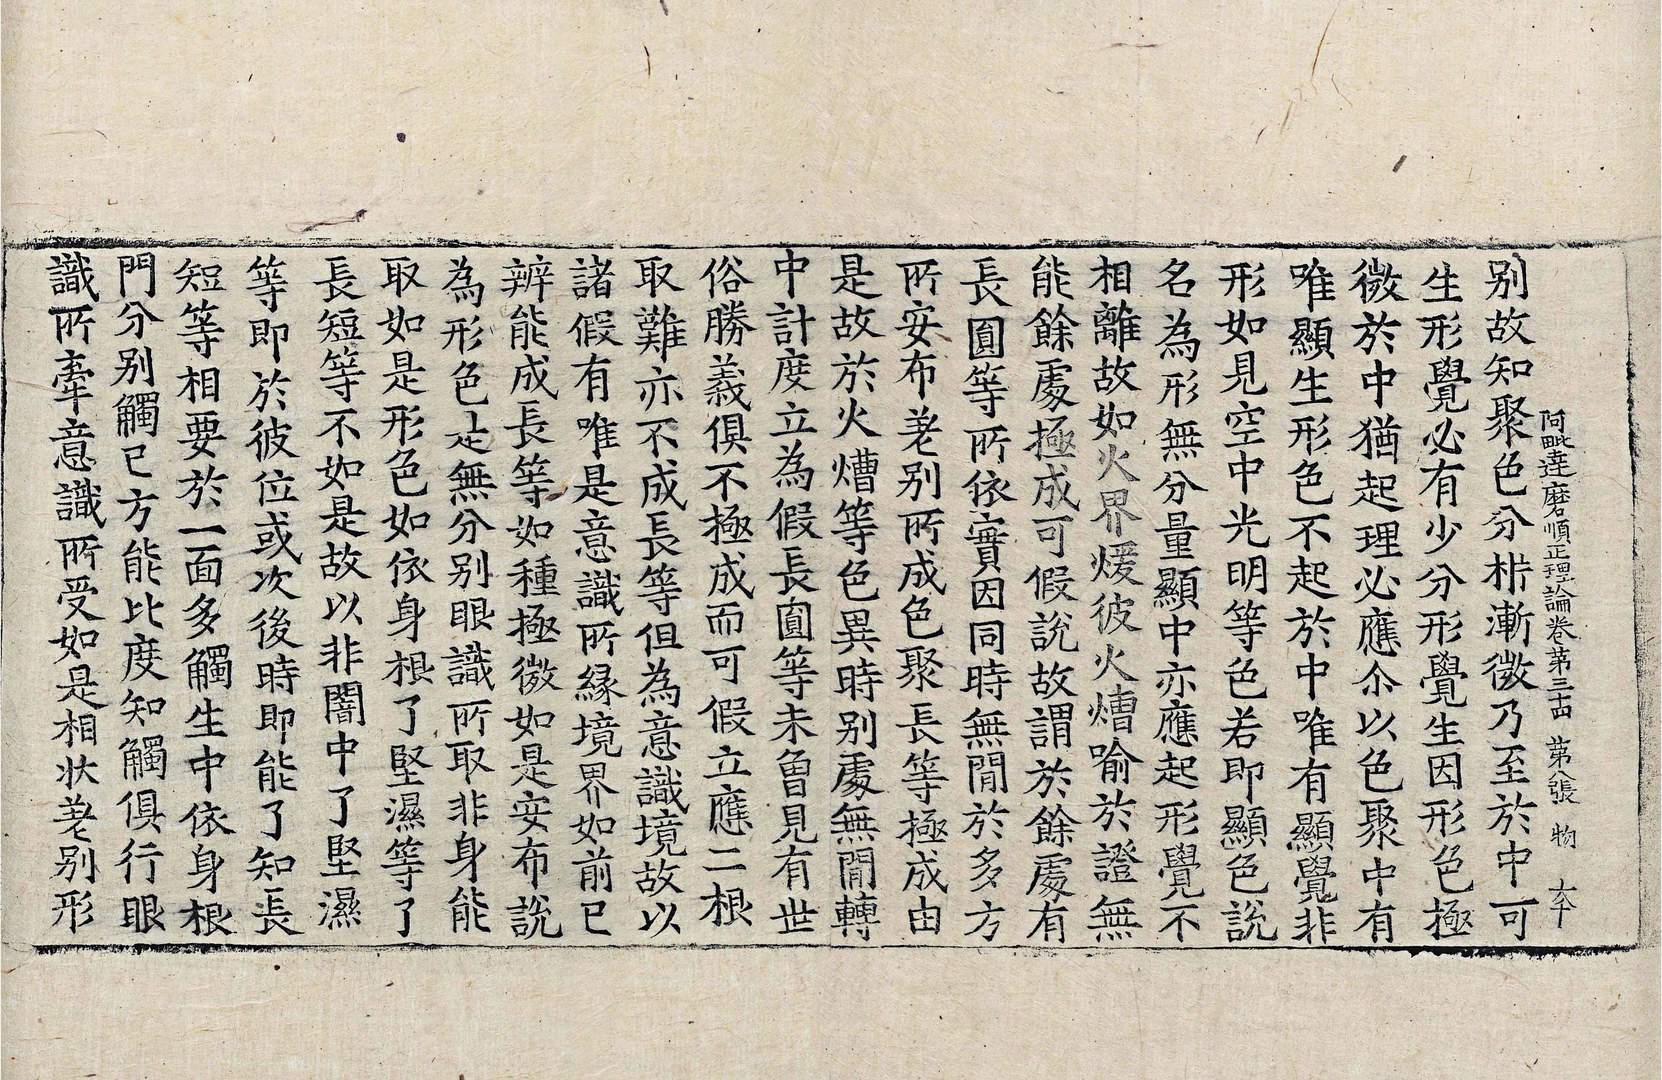 阿毗達磨順正理論卷第三十四 第八張 物
别故知聚色分析漸微乃至於中可
生形覺必有少分形覺生因形色極
微於中猶起理必應尒以色聚中有
唯顯生形色不起於中唯有顯覺非
形如見空中光明等色若即顯色說
名為形無分量顯中亦應起形覺不
相離故如火界煖彼火熸喻於證無
能餘處極成可假說故謂於餘處有
長圓等所依實因同時無閒於多方
所安布差别所成色聚長等極成由
是故於火熸等色異時别處無閒轉
中計度立為假長圓等未曾見有世
俗勝義俱不極成而可假立應二根
取難亦不成長等但為意識境故以
諸假有唯是意識所緣境界如前已
辨能成長等如種極微如是安布說
為形色是無分别眼識所取非身能
取如是形色如依身根了堅濕等了
長短等不如是故以非闇中了堅濕
等即於彼位或次後時即能了知長
短等相要於一面多觸生中依身根
門分别觸已方能比度知觸俱行眼
識所牽意識所受如是相狀差别形